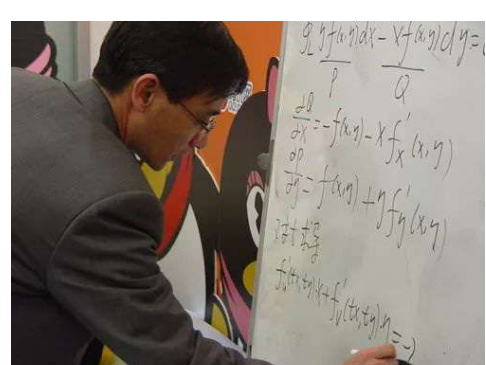 ∮_L yf(x,y)dx - xf(x,y)dy =
P Q
∂Q/∂x = -f(x,y) - xf'_x(x,y)
∂P/∂y = f(x,y) + yf'_y(x,y)
对t求导
f'_u(tx,ty)·x + f'_v(tx,ty)·y = -2